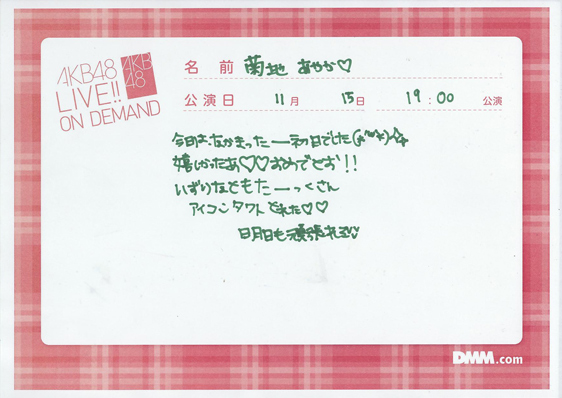 AKB48
LIVE!!
ON DEMAND
AKB
48
名 前 菊地 あやか♡
公演日 11月 15日 19:00 公演
今日は、なかまったー初日でした
嬉しかったあ♡♡おめでとお!!
いずりなともたーっくさん
アイコンタクトとれた♡♡
明日も頑張れる
DMM.com